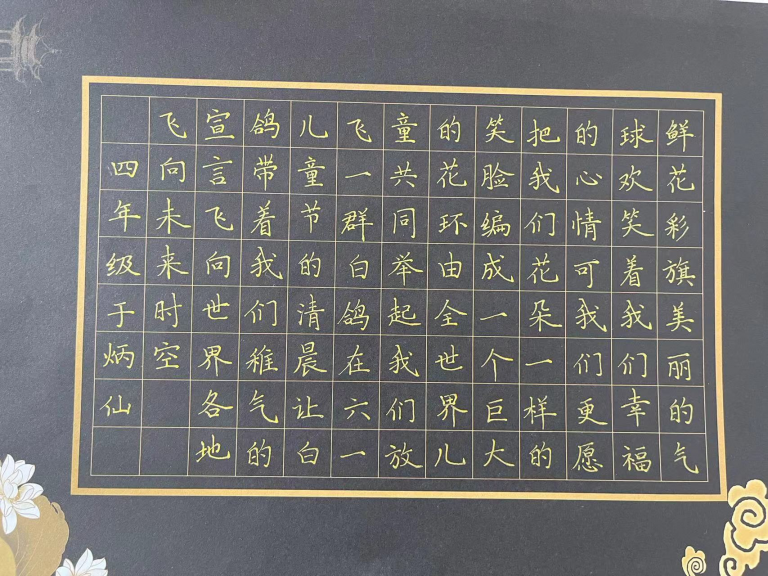 鲜花彩旗美丽的气
球欢笑着我们幸福
的心情可我们更愿
把我们花朵一样的
笑脸编成一个巨大
的花环由全世界儿
童共同举起我们放
飞一群白鸽在六一
儿童节的清晨让白
鸽带着我们稚气的
宣言飞向世界各地
飞向未来时空
四年级于炳仙